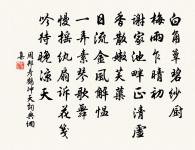 白角簟碧纱厨
梅雨乍晴初
谢家池畔正清虚
香散嫩芙蕖
日流金风解愠
一弄素琴歌舞
慢摇纨扇诉花笺
吟待晚凉天
周邦彦鹤冲天词